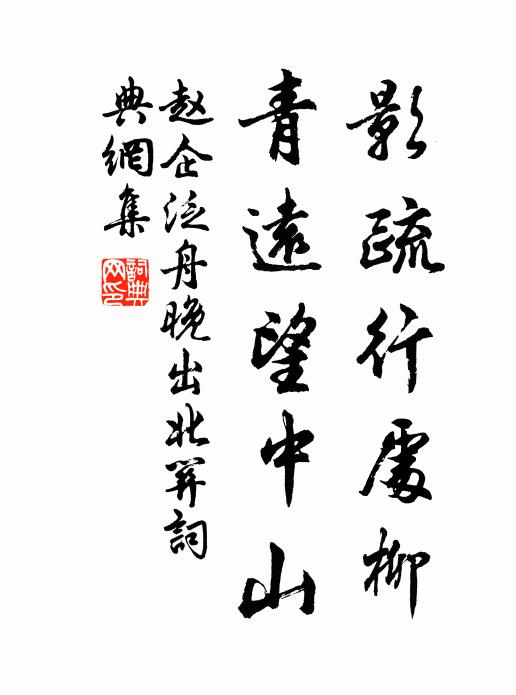 影疏行處柳
青遠望中山
赵企泛舟晚出北关詞
典網集
詞典
网印